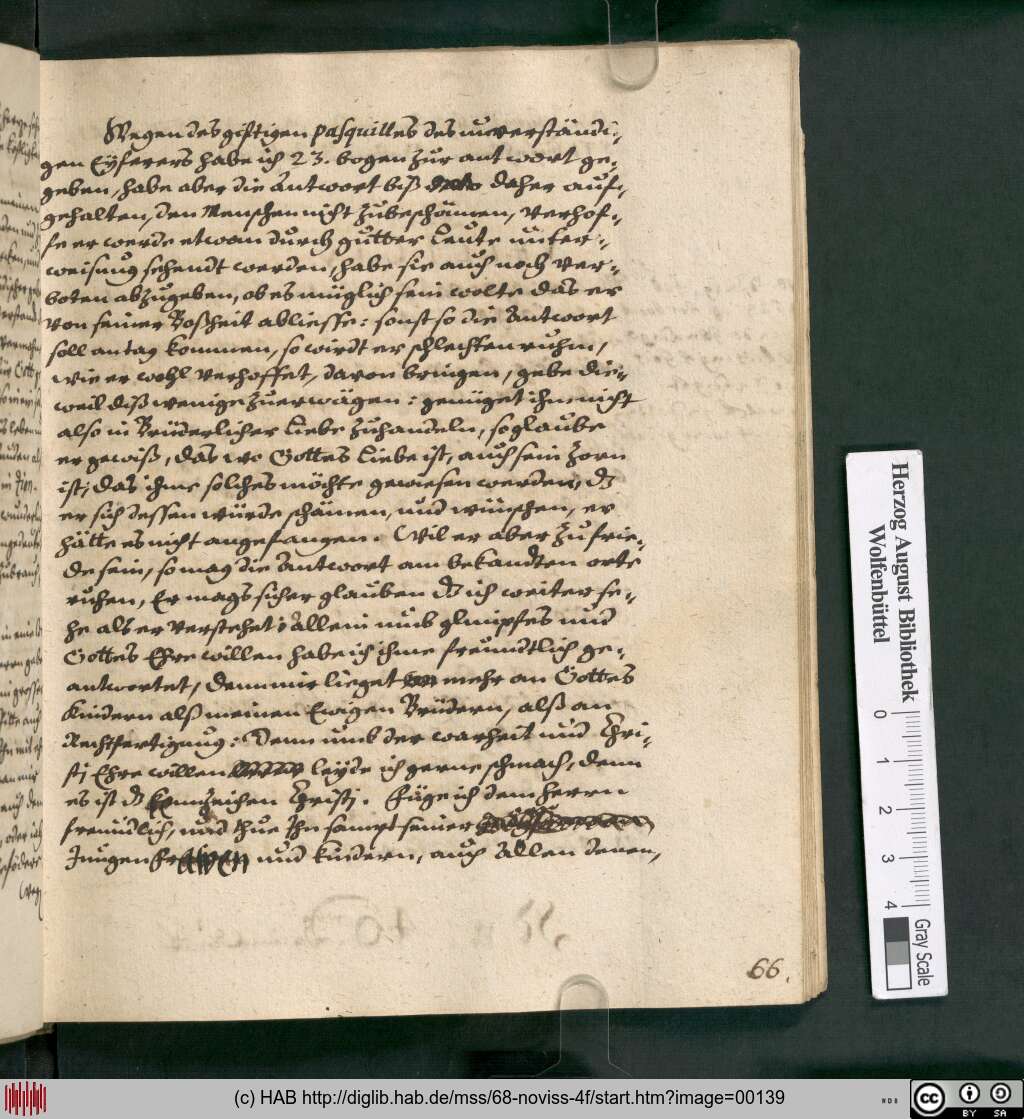 Wegen des gifftigen pasquilles des unverständi-
gen Eyferers habe ich 23. bogen zur antwort ge-
geben, habe aber die Antwort biß daher auf-
gehalten, den Menschen nicht zubeschämen, verhof-
fe er werde etwan durch gutter Leute unter-
weisung sehendt werden, habe sie auch noch ver-
boten abzugeben, ob es müglich sein wolte das er
von seiner Boßheit abliesse: sonst so die Antwort
soll an tag kommen, so wirdt er schlechten ruhm,
wie er wohl verhoffet, davon bringen, gebe die-
weil diß wenige zuerwägen: genüget ihme nicht
also in Brüderlicher Liebe zuhandeln, so glaube
er gewiß, das wo Gottes Liebe ist, auch sein Zorn
ist; das ihme solches möchte gewiesen werden, dz
er sich dessen würde schämen, und wünschen, er
hätte es nicht angefangen. Wil er aber zu frie-
de sein, so mag die Antwort am bekandten orte
ruhen, Er mags sicher glauben dz ich weiter se-
he als er verstehet: Allein umb glimpfes und
Gottes Ehre willen habe ich ihme freundtlich ge-
antwortet, denn mir lieget mehr an Gottes
Kindern alß meinen Ewigen Brüdern, alß an
Rechtfertigung: Denn umb der warheit und Chri-
stj Ehre willen leyde ich gerne schmach, denn
es ist dz Kennzeichen Christj. Füge ich dem Herrn
freundlich, und thue Ihn sampt seiner
Jungen Frawen und kindern, auch Allen denen,
66.
Herzog August Bibliothek
Wolfenbüttel
0 1 2 3 4
Gray Scale
(c) HAB http://diglib.hab.de/mss/68-noviss-4f/start.htm?image=00139
cc BY SA